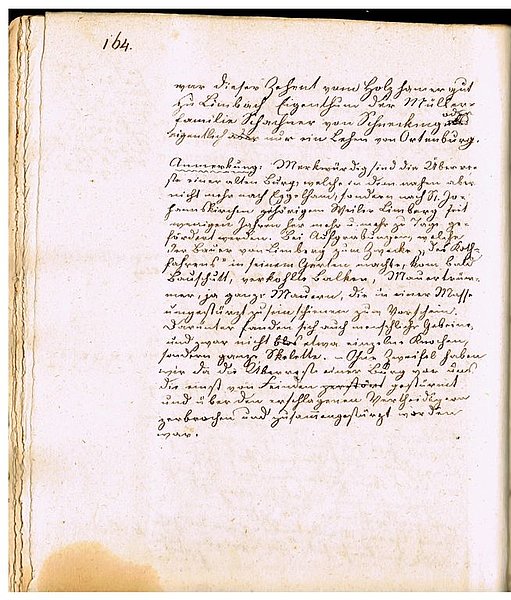 164.
war dieser Zehent vom Holzhamergut
zu Limbach Eigenthum der Müller-
familie Schachner von Schneeking oder
eigentlich aber nur ein Lehen von Ortenburg.
Anmerkung: Merkwürdig sind die Überre-
ste einer alten Burg, welche in dem nahen aber
nicht mehr nach Egglham, sondern nach St. Jo-
hanneskirchen gehörigen Weiler Limberg seit
wenigen Jahren her mehr u. mehr zu Tage ge-
fördert werden. Bei Aufgrabungen welche
der Bauer von Limberg zum Zwecke „des Koth-
fahrens" in seinem Garten machte, kam
Bauschutt, verkohlte Balken, Mauertrüm-
mer, ja ganze Mauern, die in einer Masse
umgestürzt zu sein schienen zum Vorschein.
Darunter fanden sich auch menschliche Gebeine,
und zwar nicht blos etwa einzelne Knochen,
sondern ganze Skelette. Ohne Zweifel haben
wir da die Überreste einer Burg vor uns
die einst von Feinden zerstört gestürmt
und über den erschlagenen Vertheidigern
zerbrochen und zusammengestürzt worden
war.